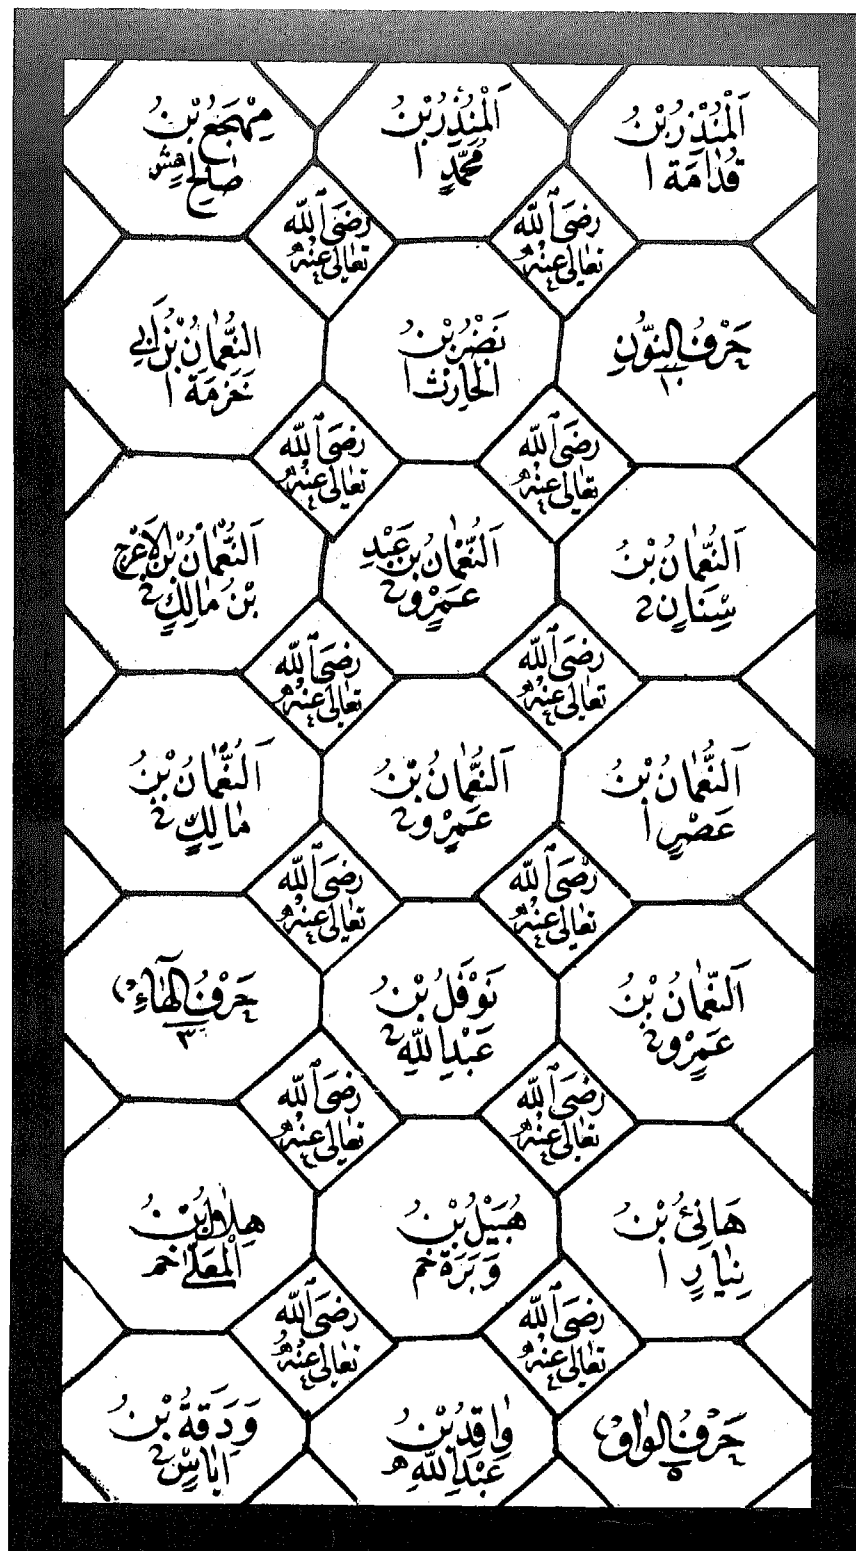 اَلْمُنْذِرُ بْنُ
قُدَامَةَ ا
اَلْمُنْذِرُ بْنُ
مُحَمَّدٍ ا
مِهْجَعُ بْنُ
صَالِحٍ هش
رَضِىَ اللّٰه
تَعَالٰى عَنْهُ
رَضِىَ اللّٰه
تَعَالٰى عَنْهُ
حَرْفُ النُّوْنِ
١٠
نَضْرُ بْنُ
الْحَارِثِ ا
اَلنُّعْمَانُ بْنُ اَبِى
خَزْمَةَ ا
رَضِىَ اللّٰه
تَعَالٰى عَنْهُ
رَضِىَ اللّٰه
تَعَالٰى عَنْهُ
اَلنُّعْمَانُ بْنُ
سِنَانٍ
اَلنُّعْمَانُ بْنُ عَبْدِ
عَمْرٍو
اَلنُّعْمَانُ بْنُ الْاَعْرَجِ
بْنُ مَالِكٍ
رَضِىَ اللّٰه
تَعَالٰى عَنْهُ
رَضِىَ اللّٰه
تَعَالٰى عَنْهُ
اَلنُّعْمَانُ بْنُ
عَصْرٍ ا
اَلنُّعْمَانُ بْنُ
عَمْرٍو
اَلنُّعْمَانُ بْنُ
مَالِكٍ
رَضِىَ اللّٰه
تَعَالٰى عَنْهُ
رَضِىَ اللّٰه
تَعَالٰى عَنْهُ
اَلنُّعْمَانُ بْنُ
عَمْرٍو
نَوْفَلُ بْنُ
عَبْدِ اللّٰهِ
حَرْفُ الْهَاءِ
٣
رَضِىَ اللّٰه
تَعَالٰى عَنْهُ
رَضِىَ اللّٰه
تَعَالٰى عَنْهُ
هَانِئُ بْنُ
نِيَارٍ ا
هُبَيْلُ بْنُ
وَبَرَةَ خم
هِلَالُ بْنُ
الْمُعَلّٰى خم
رَضِىَ اللّٰه
تَعَالٰى عَنْهُ
رَضِىَ اللّٰه
تَعَالٰى عَنْهُ
حَرْفُ الْوَاوِ
٥
وَاقِدُ بْنُ
عَبْدِ اللّٰهِ ه
وَدَقَةُ بْنُ
اِيَاسٍ